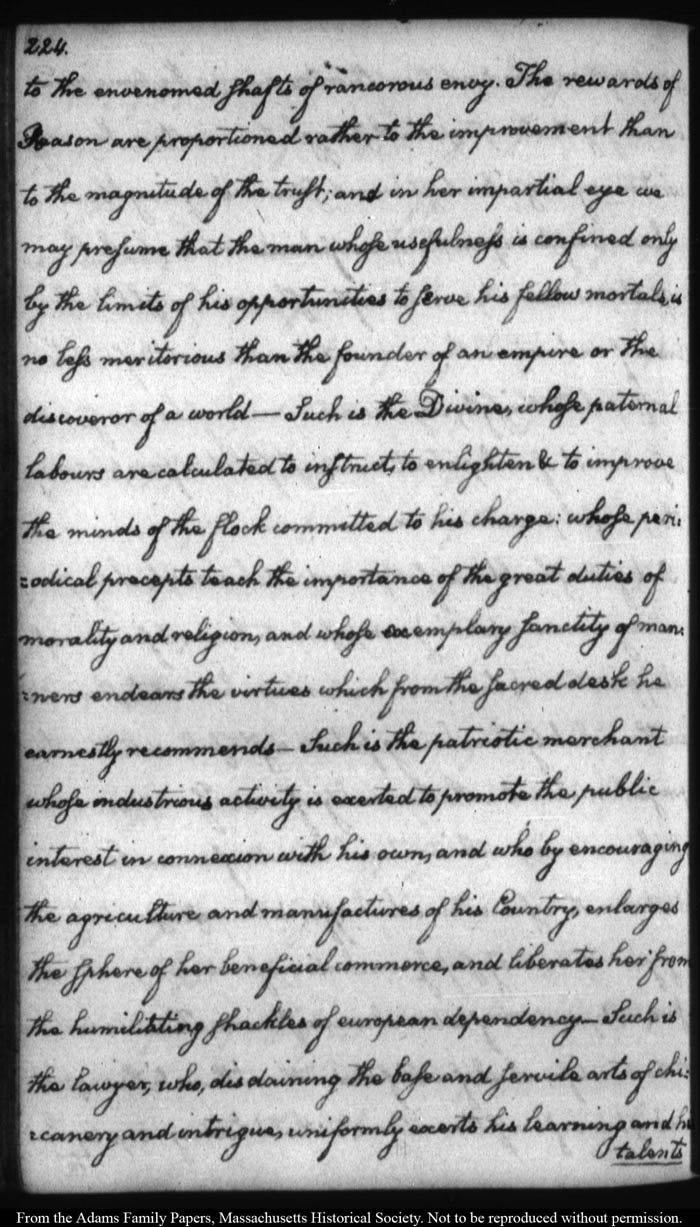 224.
to the envenomed shafts of rancorous envy. The rewards of
Reason are proportioned rather to the improvement than
to the magnitude of the trust; and in her impartial eye we
may presume that the man whose usefulness is confined only
by the limits of his opportunities to serve his fellow mortals, is
no less meritorious than the founder of an empire or the
discoveror of a world — Such is the Divine, whose paternal
labours are calculated to instruct, to enlighten & to improve
the minds of the flock committed to his charge: whose peri:
=odical precepts teach the importance of the great duties of
morality and religion, and whose exemplary sanctity of man:
:ners endears the virtues which from the sacred desk he
earnestly recommends — Such is the patriotic merchant
whose industrious activity is exerted to promote the public
interest in connexion with his own, and who by encouraging
the agriculture and manufactures of his Country, enlarges
the sphere of her beneficial commerce, and liberates her from
the humiliating shackles of european dependency — Such is
the lawyer, who, disdaining the base and servile arts of chi:
:canery and intrigue, uniformly exerts his learning and his
talents
From the Adams Family Papers, Massachusetts Historical Society. Not to be reproduced without permission.